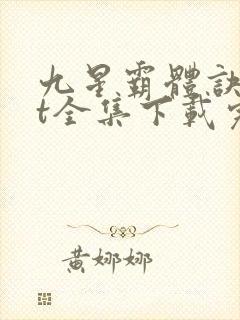 九星霸體訣
t全集下載
黃娜娜